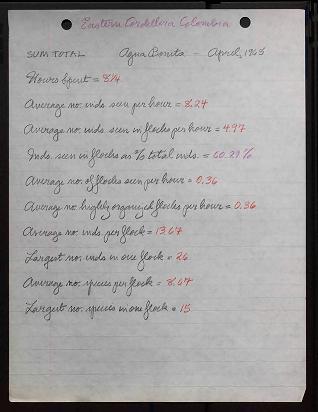 Eastern Cordillera Colombia
SUM TOTAL Agua Bonita - April, 1963
Hours Spent = 8¼
Average no. inds. seen per hour = 8.24
Average no. inds. seen in flocks per hour = 4.97
Inds. seen in flocks as % total inds. = 60.29%
Average no. of flocks seen per hour = 0.36
Average no. highly organized flocks per hour = 0.36
Average no. inds. per flock = 13.67
Largest no. inds in one flock = 26
Average no. species per flock = 8.67
Largest no. species in one flock = 15